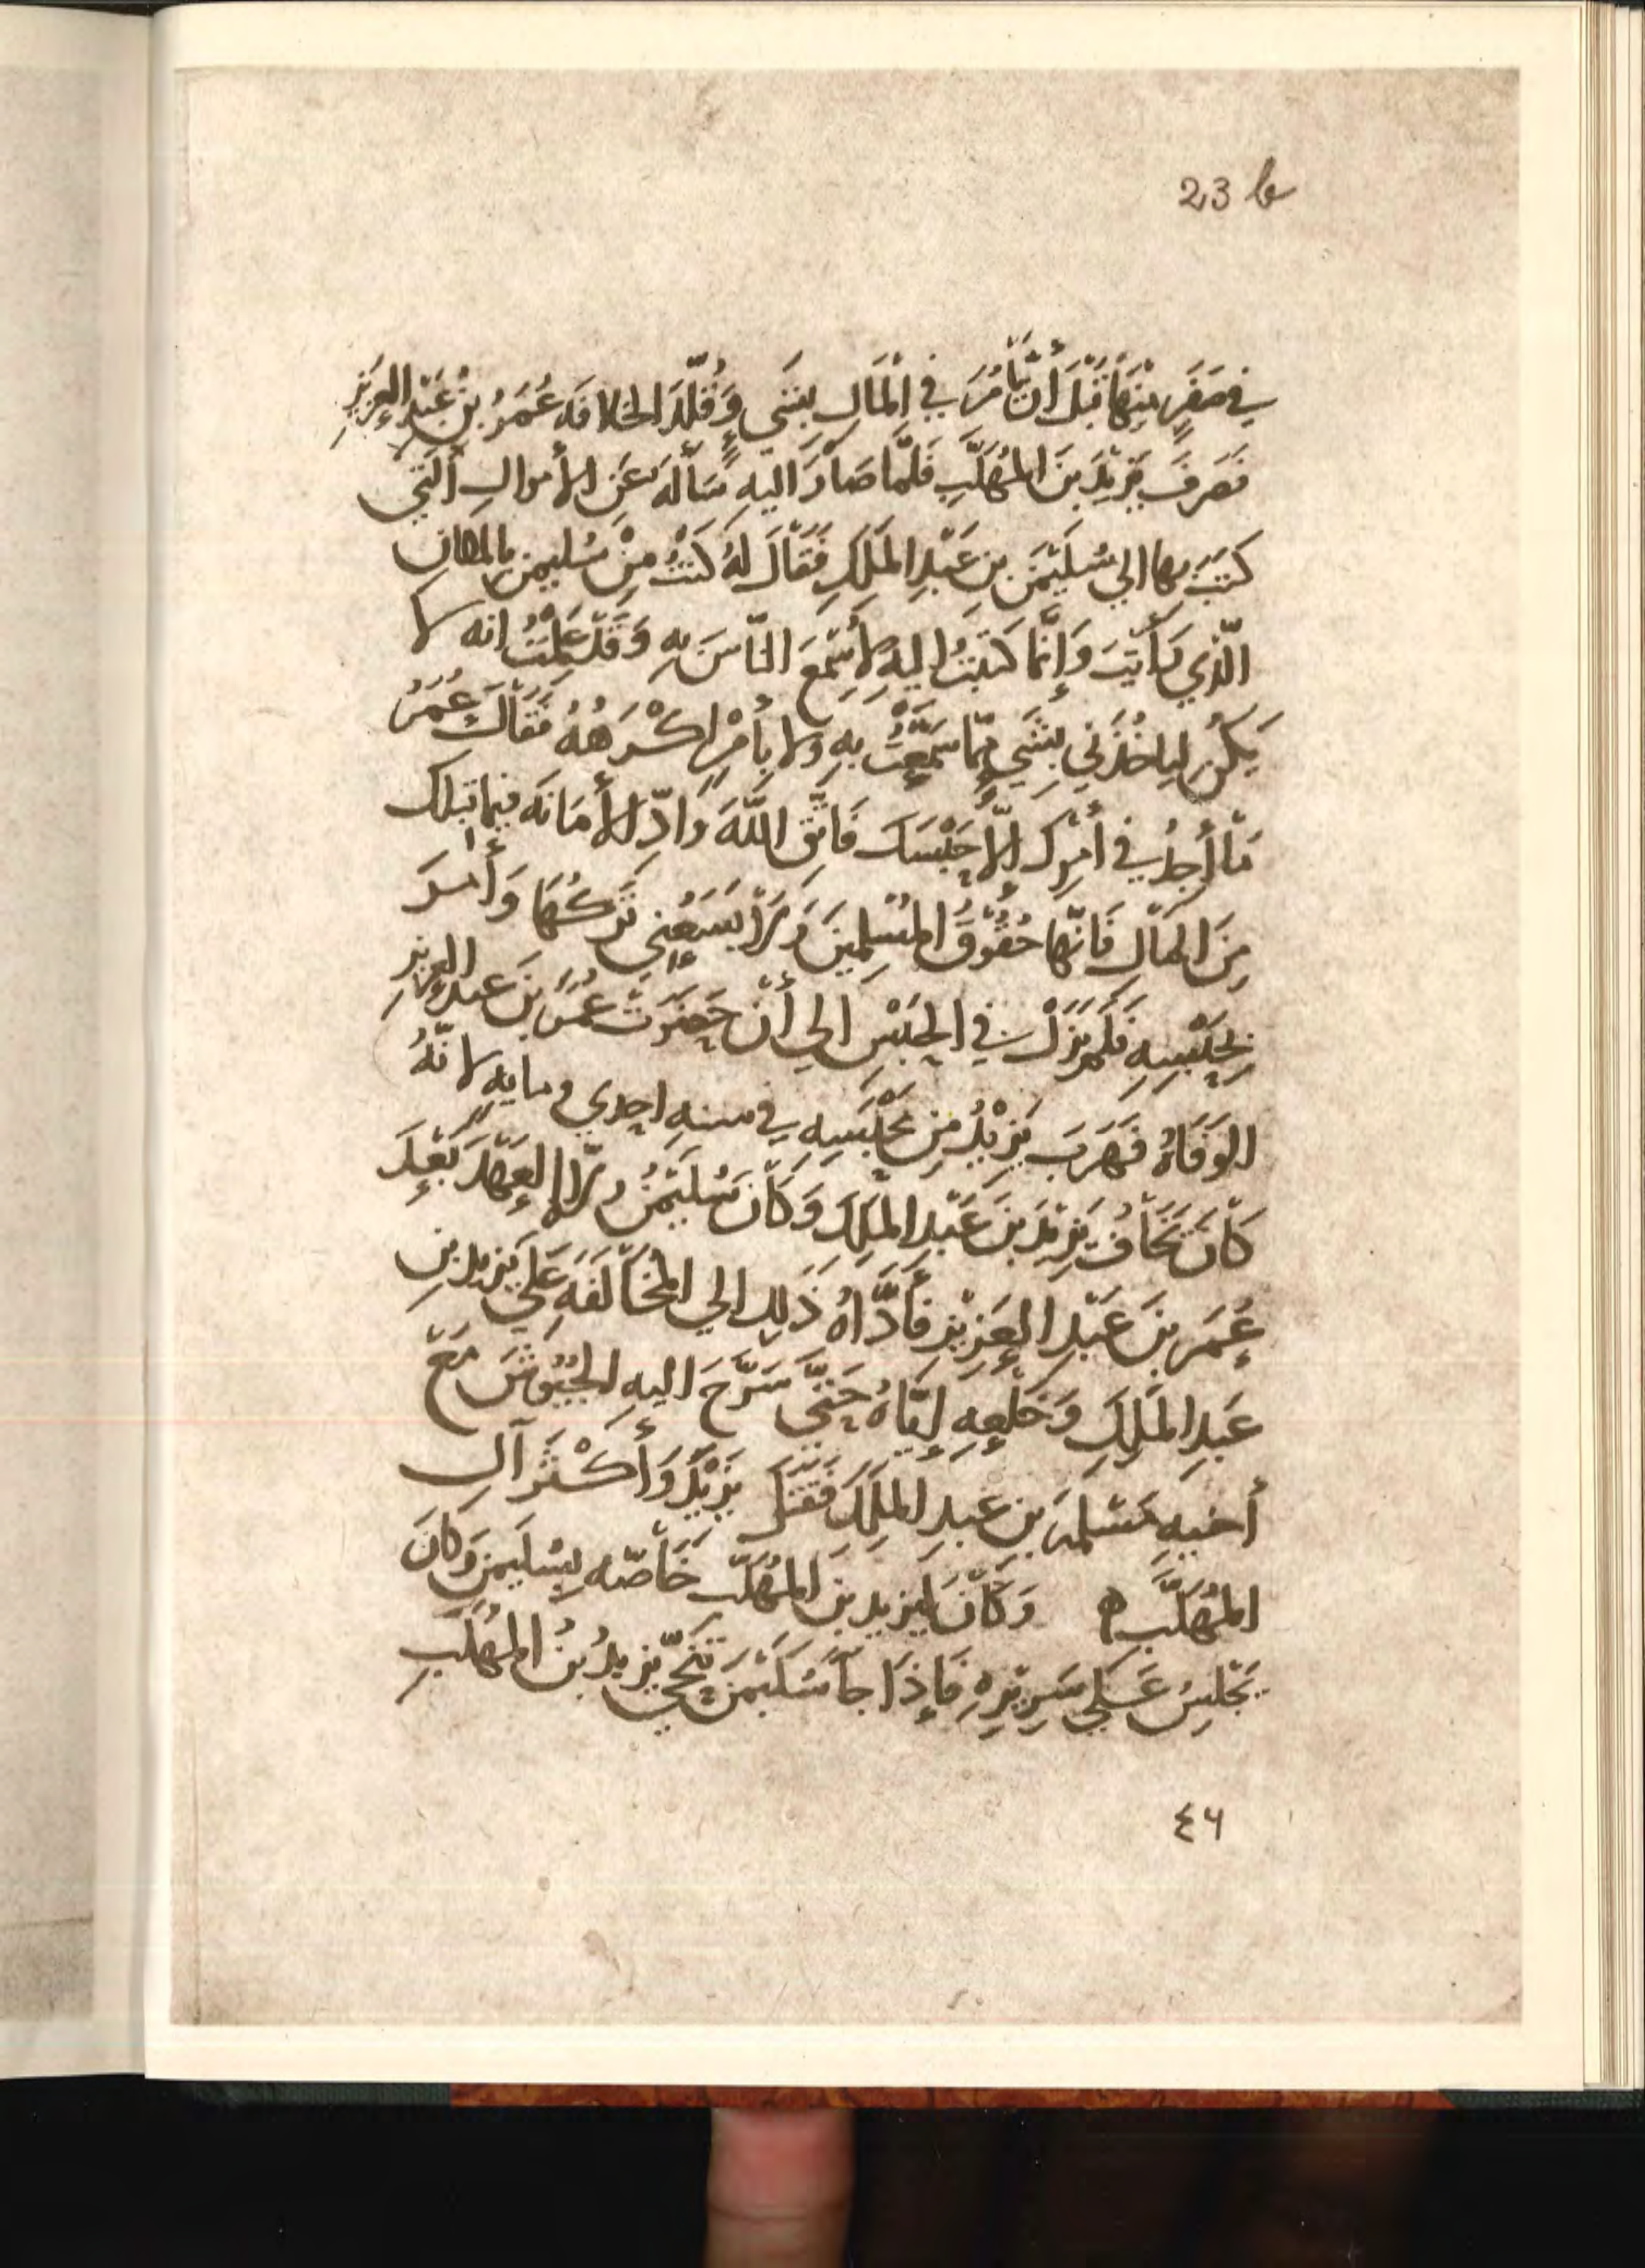 23 b
في صَفَرٍ مِنْهَا قَبْلَ أَنْ يَأْمُرَ فِي الْمَالِ بِشَيءٍ وَقُلِّدَ الخلافَه عُمَرُ بنُ عَبْدِ العَزِيزِ
فَصَرفَ يَزِيْدَ بنَ المُهَلَّبِ فَلَمَّا صَارَ اليهِ سَأَلَهُ عَنِ الأموالِ الَّتِي
كَتَبَ بها الي سُلَيْمَنَ بنِ عَبْدِ المَلِكِ فَقَالَ لهُ كُنْتُ مِنْ سُليمنَ بالمكانِ
الَّذِي رَأَيْتَ وَإِنَّمَا كَتَبْتُ إليهِ لأُسَمِّعَ النَّاسَ بِهِ وَقَدْ عَلِمْتُ انه لا
يَكُن لياخُذَنِي بِشَيءٍ مِمَّا سَمَّعْتُ بِهِ ولا بِأَمْرٍ اكْرَهُهُ فَقَالَ عُمَرُ
مَا أَجِدُ فِي أَمْرِكَ إلّا حَبْسَكَ فَاتَّقِ اللَّهَ وَادّ الأَمَانَه فيما قبلك
مِنَ المَالِ فَانَّها حُقُوْقُ المُسْلِمِينَ وَلَا يَسَعُنِي تَرْكُهَا وَأَمَرَ
بِحَبْسِهِ فَلَم يَزَلْ فِي الحَبْسِ الي أَنْ حَضَرَتْ عُمَرَ بنَ عبدِ العزيزِ
الوَفَاهُ فَهَرَبَ يَزِيْدُ مِن مَحْبِسِهِ فِي سنهِ احدي ومايهٍ لانَّهُ
كَانَ يَخَافُ يَزِيْدَ بنَ عَبْدِ المَلِكِ وَكَانَ سُلَيْمَنُ ولّاه العَهْدَ بَعْدَ
عُمَرَ بنَ عَبْدِ العَزِيْزِ فَأَدَّاهُ ذَلِك الي المُخَالَفَهِ عَلَي يَزِيدَ بنِ
عَبدِ المَلِكِ وَخَلْعِهِ إيَّاهُ حَتَّى سَرَّحَ اليهِ الجُيُوْشَ مَعَ
أخيهِ مَسْلَمَه بنِ عبدِ المَلِكِ فَقَتَلَ يَزِيْدَ وَأَكْثَرَ آلِ
المُهَلَّبِ ه وَكَانَ ليزيدِ بنِ المُهَلَّبِ خَاصّه بِسُلَيمنَ وَكَانَ
يَجْلِسُ عَلَى سَرِيْرِهِ فَإِذَا جَا سُلَيْمَن تَنَحَّي يزيدُ بنُ المُهَلَّبِ
٤٦